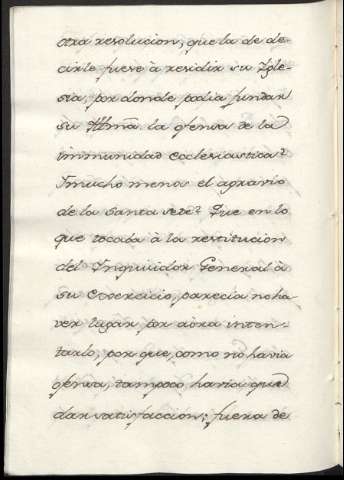 otra resolucion, que la de de-
cirle fuese à residir su Igle-
sia, por donde podia fundar
su Illmã. la ofensa de la
immunidad ecclesiastica?
I mucho menos el agravio
de la Santa sede? Que en lo
que tocaba à la restitucion
del Inquisidor General à
su exercicio, parecia no ha
ver lugar por aòra inten-
tarlo, porque, como no havia
ofensa, tampoco havia que
dar satisfaccion; fuera de